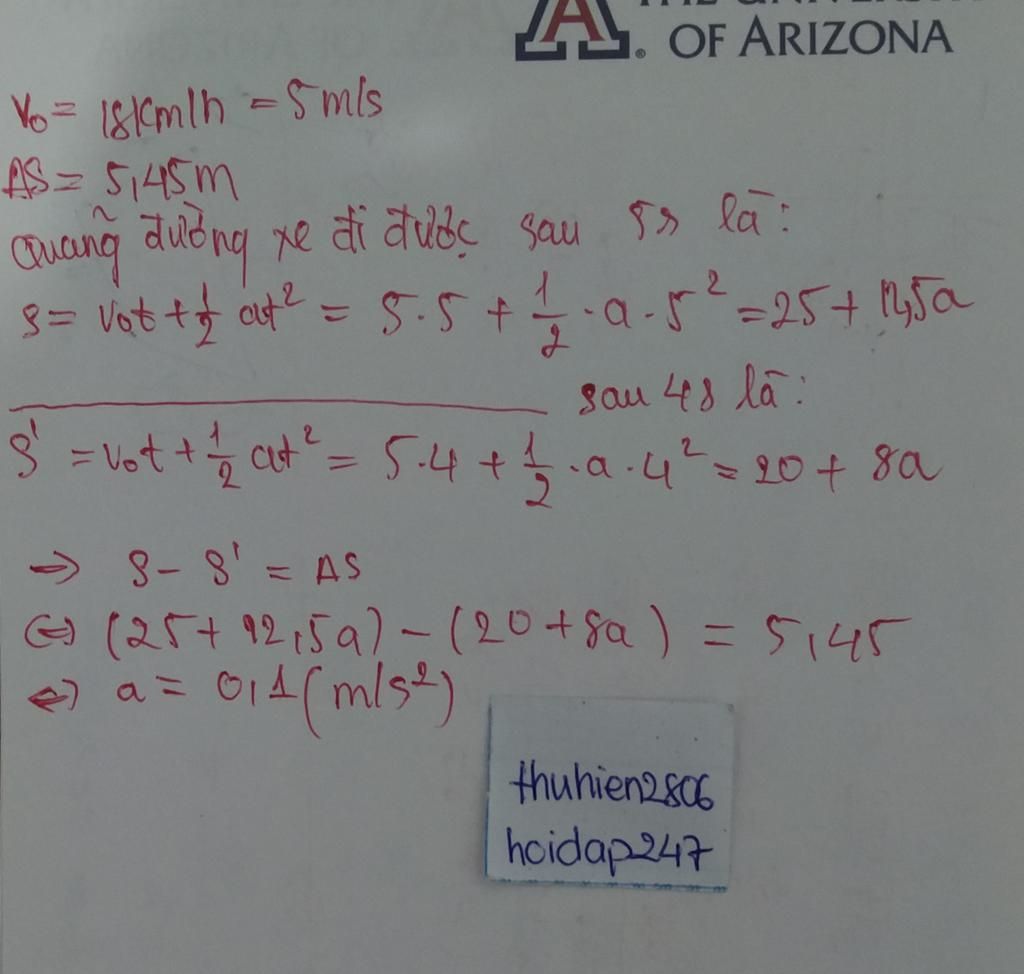 THE UNIVERSITY
OF ARIZONA
A
V₀ = 18Km/h = 5m/s
ΔS = 5,45m
Quãng đường xe đi được sau 5s là:
S = V₀t + 1/2 at² = 5.5 + 1/2 . a . 5² = 25 + 12,5a
sau 4s là:
S' = V₀t + 1/2 at² = 5.4 + 1/2 . a . 4² = 20 + 8a
=> S - S' = ΔS
<=> (25 + 12,5a) - (20 + 8a) = 5,45
<=> a = 0,1 (m/s²)
thuhien2806
hoidap247